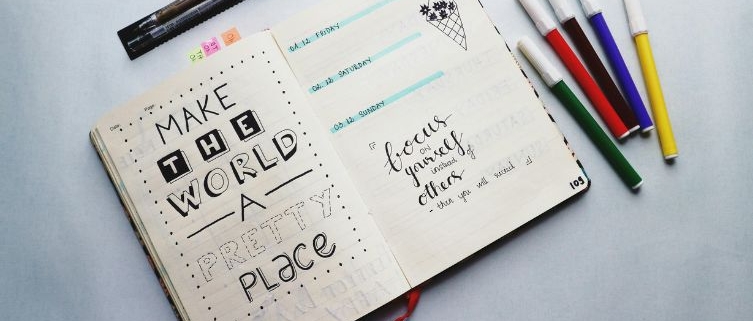 MAKE
THE
WORLD
A
PRETTY
PLACE
01.12 FRIDAY
02.12 SATURDAY
03.12 SUNDAY
focus
on
yourself
instead of
others
- then you will succeed
109